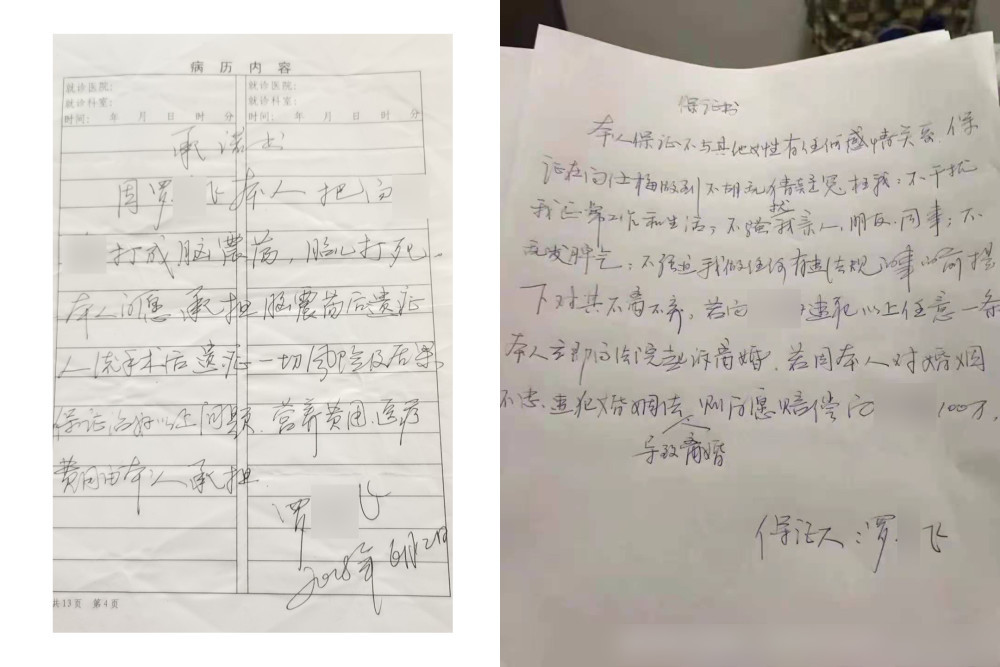 病历内容
就诊医院:
就诊科室:
时间: 年 月 日 时 分
就诊医院:
就诊科室:
时间: 年 月 日 时 分
承诺书
因罗 飞本人把向
打成脑震荡,胎儿打死.
本人自愿承担脑震荡后遗症
人流手术后遗症一切风险及后果
保证治好以上问题.营养费用.医疗
费用由本人承担.
罗 飞
年6月2日
共13页 第4页
保证书
本人保证不与其他女性有任何感情关系.保
证在向 做到不胡乱猜疑冤枉我;不干扰
我正常工作和生活;不骚扰我亲人.朋友.同事;不
乱发脾气;不强迫我做任何有违法规的事的前提
下对其不离不弃,若向 违犯以上任意一条
本人立即向法院起诉离婚.若因本人对婚姻
不忠.违犯婚姻法,则自愿赔偿向 100万,
导致离婚
保证人:罗 飞